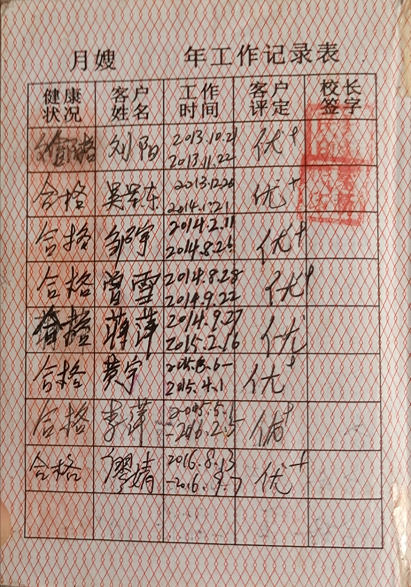 月嫂 年工作记录表
健康状况 客户姓名 工作时间 客户评定 校长签字
合格 刘阳 2013.10.21 2013.11.22 优+
合格 2013.12.26 2014.1.21 优+
合格 邹宇 2014.2.11 2014.8.26 优+
合格 曾雪 2014.8.28 2014.9.22 优+
合格 蒋萍 2014.9.27 2015.2.16 优
合格 黄宇 2015.3.6- 2015.4.1 优+
合格 李萍 2015.5. -2016.2.5 优+
合格 廖婧 2016.8.13 -2016.9.7 优+